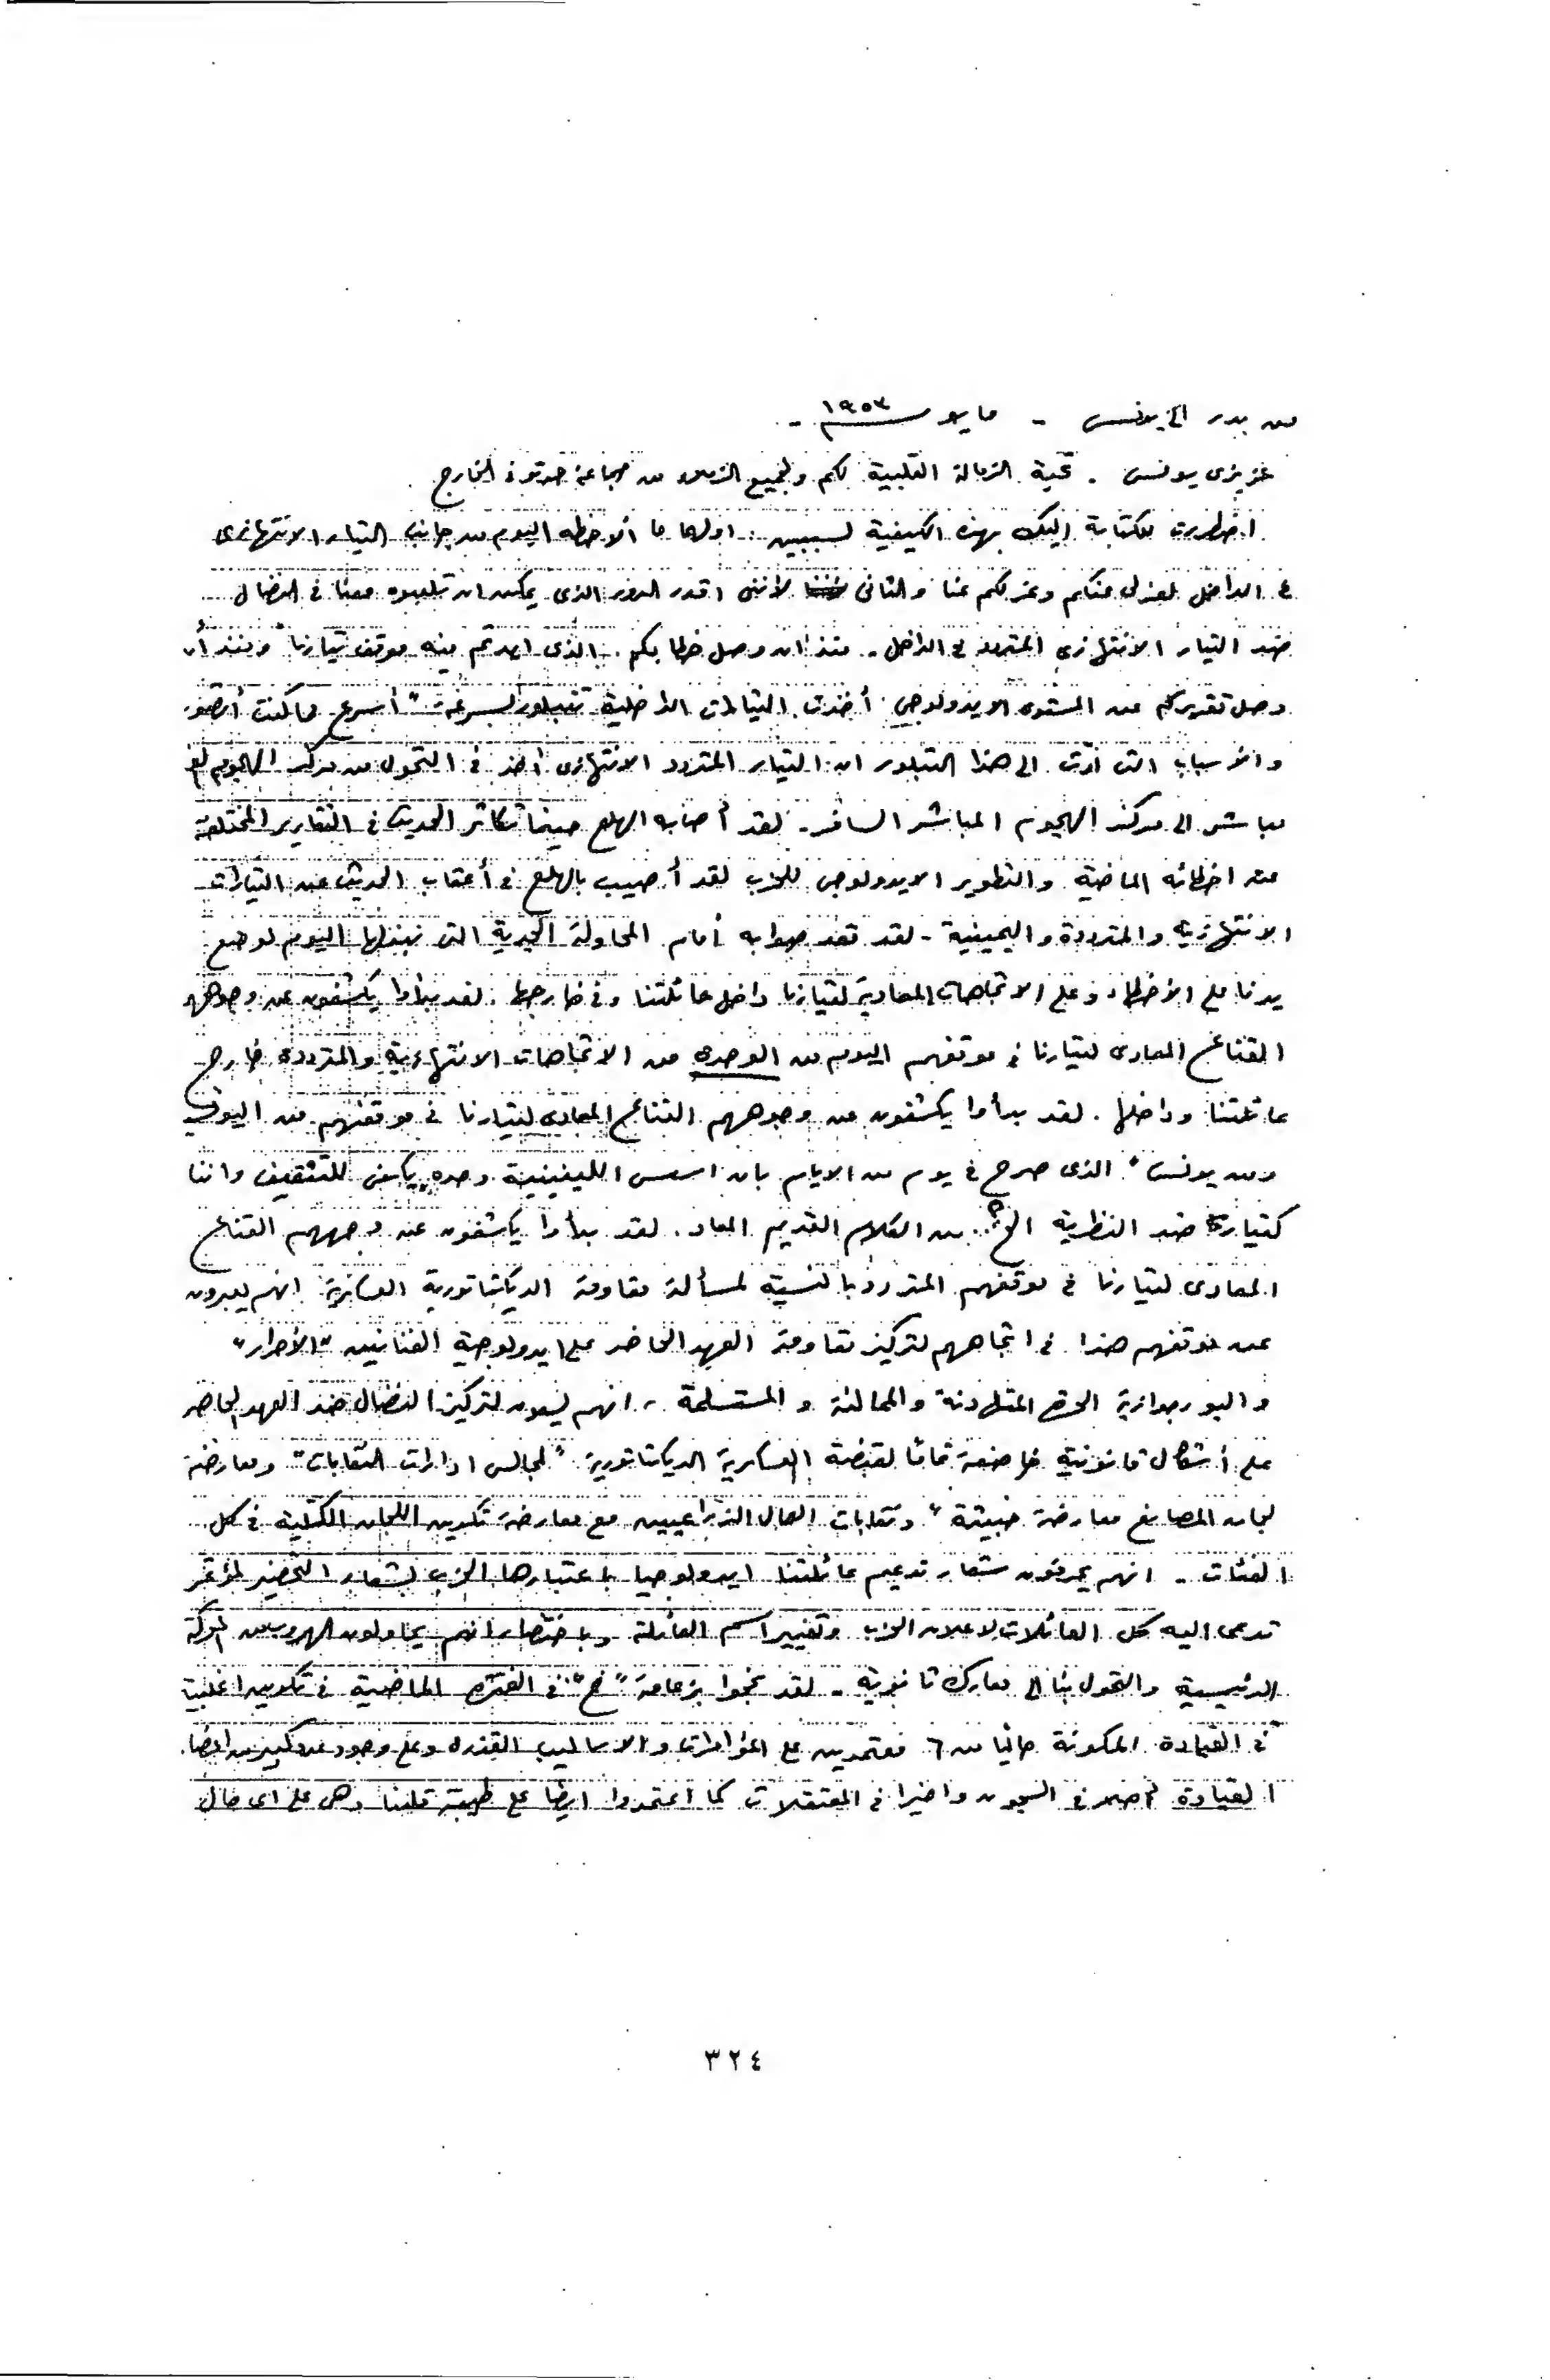 من بدر الى يونس - مايو ١٩٥٣ -
عزيزى يونس . تحية الزمالة القلبية لكم ولجميع الزملاء من جماعة حدتو فى الخارج .
اضطررت للكتابة اليك بهذه الكيفية لسببين : اولهما ما ألاحظه اليوم من جانب التيار الانتهازى
فى الداخل لعزلى عنكم وعزلكم عنا والثانى لأننى اقدر الدور الذى يمكن ان تلعبوه معنا فى النضال
ضد التيار الانتهازى المتردد فى الداخل . منذ ان وصل خطابكم الذى ايدتم فيه موقف تيارنا ومنذ أن
وصل تقريركم عن المستوى الايدولوجى أخذت التيارات الداخلية تتبلور بسرعة " أسرع مما كنت أتصور
والأسباب التى أدت الى هذا التبلور ان التيار المتردد الانتهازى اخذ فى التحول من مركز الهجوم الغير
مباشر الى مركز الهجوم المباشر السافر . لقد أصابه الهلع حينما تكاثر الحديث فى التقارير المختلفة
عن اخطائه الماضية والتطوير الايدولوجى للحزب لقد أصيب بالهلع فى أعقاب الحديث عن التيارات
الانتهازية والمترددة واليمينية - لقد فقد صوابه أمام المحاولة الجدية التى نبذلها اليوم لوضع
يدنا على الأخطاء وعلى الاتجاهات المعادية لتيارنا داخل عائلتنا وفى خارجها . لقد بدأوا يكشفون عن وجوههم
القناع المعادى لتيارنا فى موقفهم اليوم من الوحدة من الاتجاهات الانتهازية والمترددة خارج
عائلتنا وداخلها . لقد بدأوا يكشفون عن وجوههم القناع المعادى لتيارنا فى موقفهم من
ومن يونس " الذى صرح فى يوم من الايام بان اسس اللينينية وحده يكفى للتثقيف واننا
كتيار ضد النظرية الخ .. من الكلام القديم المعاد . لقد بدأوا يكشفون عن وجههم القناع
المعادى لتيارنا فى موقفهم المتردد بالنسبة لمسألة مقاومة الديكتاتورية العسكرية انهم يعبرون
عن موقفهم هذا فى اتجاههم لتركيز مقاومة العهد الحاضر على ايدولوجية الفنانين "الأحرار"
والبورجوازية المتهادنة والممالئة والمستسلمة ، انهم يسعون لتركيز النضال ضد العهد الحاضر
على أشكال قانونية خاضعة تماما لقبضة العسكرية الديكتاتورية " لمجالس ادارات النقابات " ومعارضة
لجان المصانع معارضة خبيثة " ونقابات العمال الزراعيين مع معارضة تكوين اللجان الكتلية فى كل
الفئات - انهم يحرفون شعار تدعيم عائلتنا ايدولوجيا باعتبارها الحزب بشعار التحضير لمؤتمر
تدعى اليه كل العائلات لاعلان الحزب وتغيير اسم العائلة وباختصار انهم يحاولون الهروب من المعركة
الرئيسية والتحول بنا الى معارك ثانوية - لقد نجحوا بزعامة " خ " فى الفترة الماضية فى تكوين اغلبية
فى القيادة المكونة حاليا من ٦ معتمدين على المؤامرات والاساليب القذرة وعلى وجود عدد كبير من اعضاء
القيادة فى السجون واخيرا فى المعتقلات كما اعتمدوا ايضا على طيبة قلبنا وهى على اى حال
٣٢٤